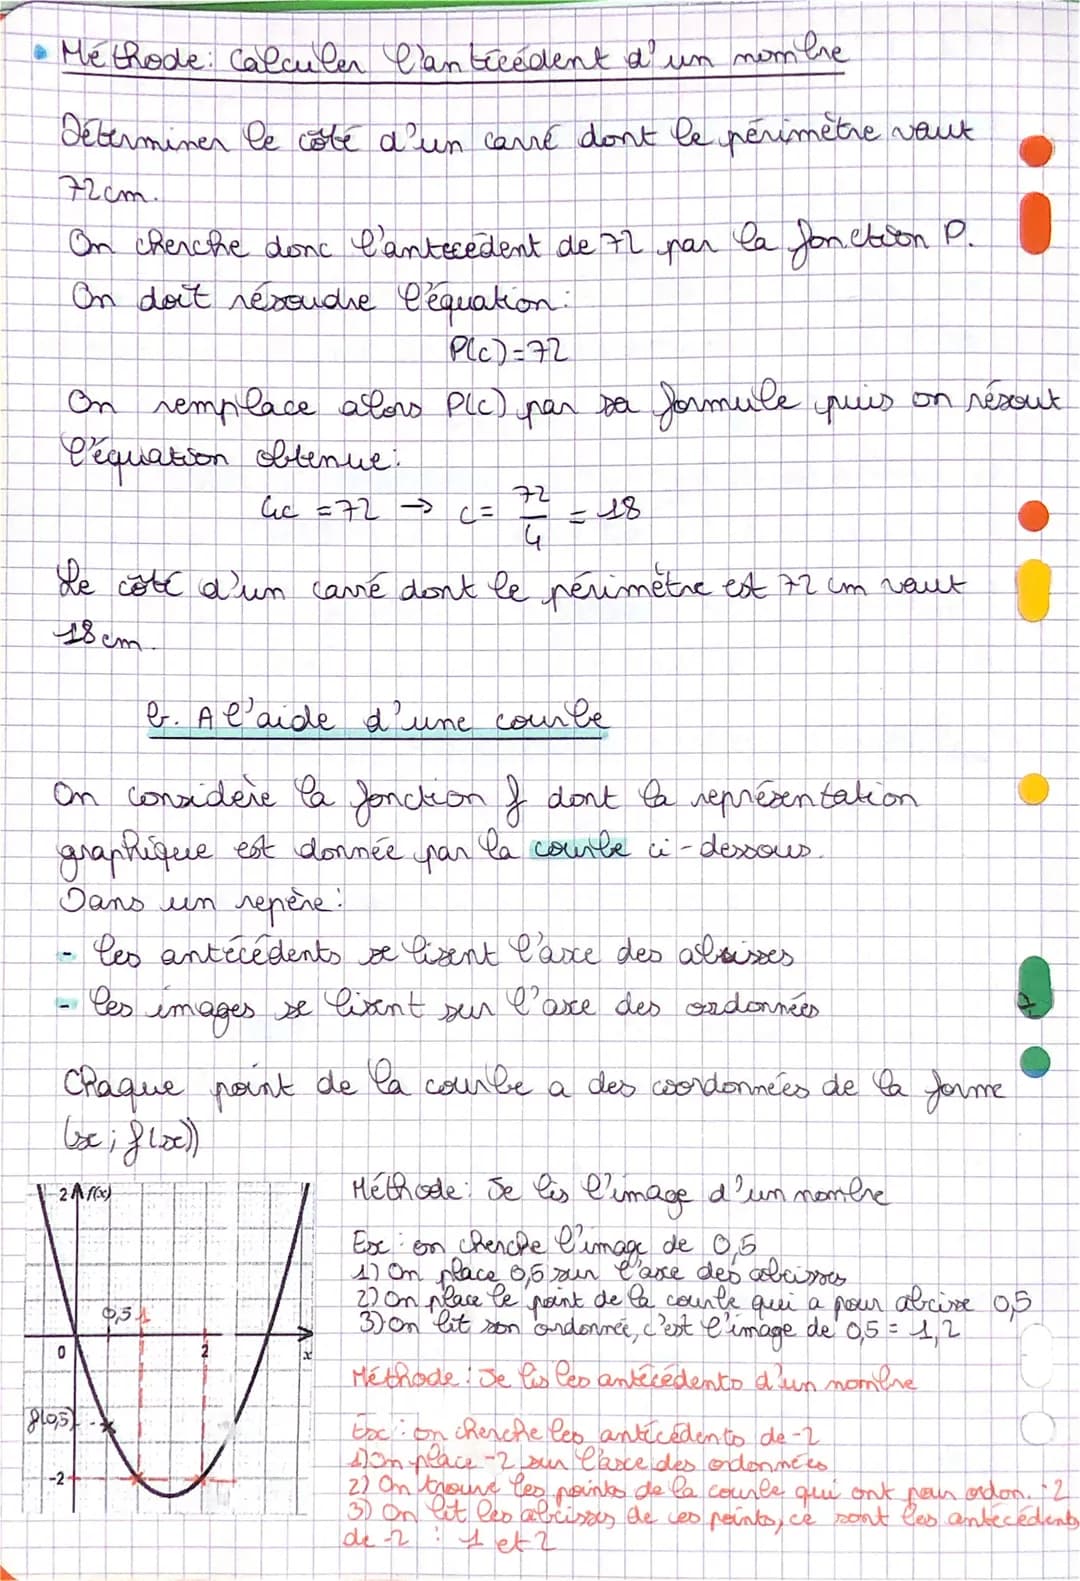 Méthode: Calculer l'antécédent d'un nombre
Déterminer le côté d'un carré dont le périmètre vaut
72cm.
On cherche donc l'antécédent de 72 par la fonction P.
On doit résoudre l'équation:
P(c)=72
On remplace alors P(c) par sa formule puis on résout
l'équation obtenue:
4c = 72 → c = 72/4 = 18
Le côté d'un carré dont le périmètre est 72 cm vaut
18cm.
b. A l'aide d'une courbe
On considère la fonction f dont la représentation
graphique est donnée par la courbe ci-dessous.
Dans un repère:
- les antécédents se lisent l'axe des abcisses
- les images se lisent sur l'axe des ordonnées
Chaque point de la courbe a des coordonnées de la forme
(x; f(x))
2 f(x)
0,5 1
0 2 x
f(0,5)
-2
Méthode: Je lis l'image d'un nombre
Ex: on cherche l'image de 0,5
1) On place 0,5 sur l'axe des abcisses
2) On place le point de la courbe qui a pour abcisse 0,5
3) On lit son ordonnée, c'est l'image de 0,5 = 1,2
Méthode: Je lis les antécédents d'un nombre
Ex: on cherche les antécédents de -2
1) On place -2 sur l'axe des ordonnées
2) On trouve les points de la courbe qui ont pour ordon. -2
3) On lit les abcisses de ces points, ce sont les antécédents
de -2 : 1 et 2